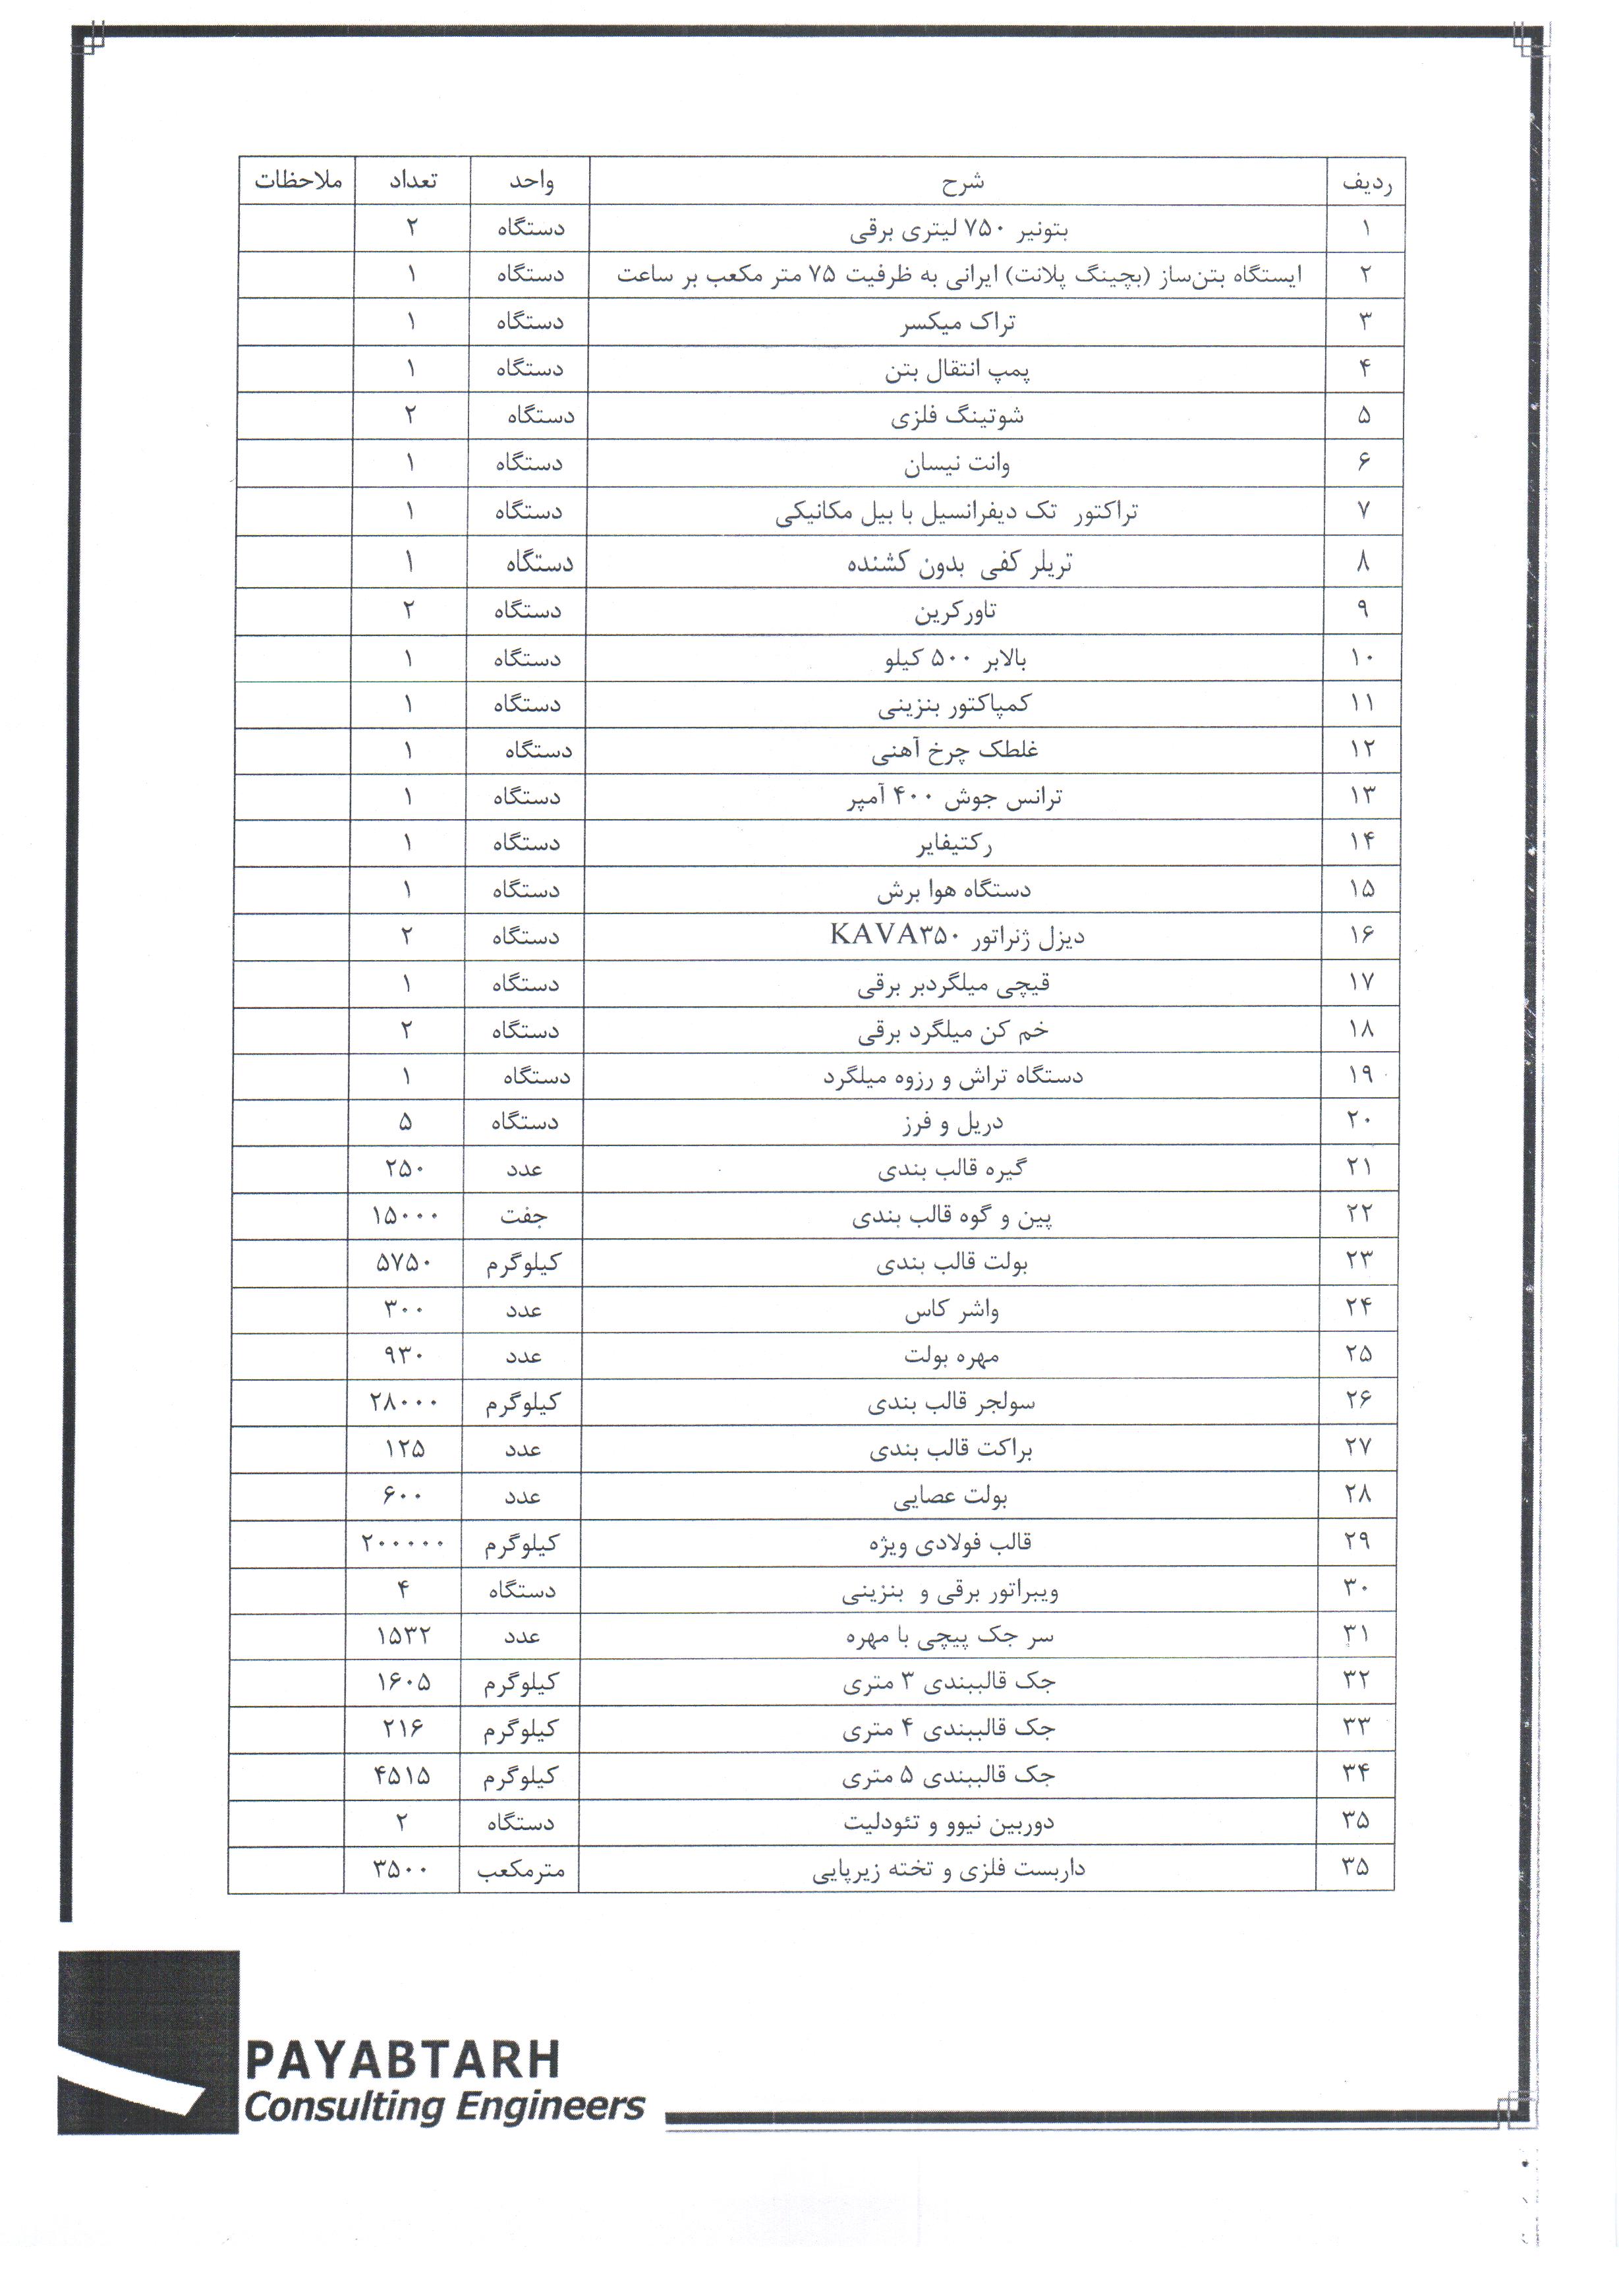 ردیف شرح واحد تعداد ملاحظات
۱ بتونیر ۷۵۰ لیتری برقی دستگاه ۲
۲ ایستگاه بتن‌ساز (بچینگ پلانت) ایرانی به ظرفیت ۷۵ متر مکعب بر ساعت دستگاه ۱
۳ تراک میکسر دستگاه ۱
۴ پمپ انتقال بتن دستگاه ۱
۵ شوتینگ فلزی دستگاه ۲
۶ وانت نیسان دستگاه ۱
۷ تراکتور تک دیفرانسیل با بیل مکانیکی دستگاه ۱
۸ تریلر کفی بدون کشنده دستگاه ۱
۹ تاورکرین دستگاه ۲
۱۰ بالابر ۵۰۰ کیلو دستگاه ۱
۱۱ کمپاکتور بنزینی دستگاه ۱
۱۲ غلطک چرخ آهنی دستگاه ۱
۱۳ ترانس جوش ۴۰۰ آمپر دستگاه ۱
۱۴ رکتیفایر دستگاه ۱
۱۵ دستگاه هوا برش دستگاه ۱
۱۶ دیزل ژنراتور KAVA۳۵۰ دستگاه ۲
۱۷ قیچی میلگردبر برقی دستگاه ۱
۱۸ خم کن میلگرد برقی دستگاه ۲
۱۹ دستگاه تراش و رزوه میلگرد دستگاه ۱
۲۰ دریل و فرز دستگاه ۵
۲۱ گیره قالب بندی عدد ۲۵۰
۲۲ پین و گوه قالب بندی جفت ۱۵۰۰۰
۲۳ بولت قالب بندی کیلوگرم ۵۷۵۰
۲۴ واشر کاس عدد ۳۰۰
۲۵ مهره بولت عدد ۹۳۰
۲۶ سولجر قالب بندی کیلوگرم ۲۸۰۰۰
۲۷ براکت قالب بندی عدد ۱۲۵
۲۸ بولت عصایی عدد ۶۰۰
۲۹ قالب فولادی ویژه کیلوگرم ۲۰۰۰۰۰
۳۰ ویبراتور برقی و بنزینی دستگاه ۴
۳۱ سر جک پیچی با مهره عدد ۱۵۳۲
۳۲ جک قالببندی ۳ متری کیلوگرم ۱۶۰۵
۳۳ جک قالببندی ۴ متری کیلوگرم ۲۱۶
۳۴ جک قالببندی ۵ متری کیلوگرم ۴۵۱۵
۳۵ دوربین نیوو و تئودلیت دستگاه ۲
۳۵ داربست فلزی و تخته زیرپایی مترمکعب ۳۵۰۰
PAYABTARH
Consulting Engineers